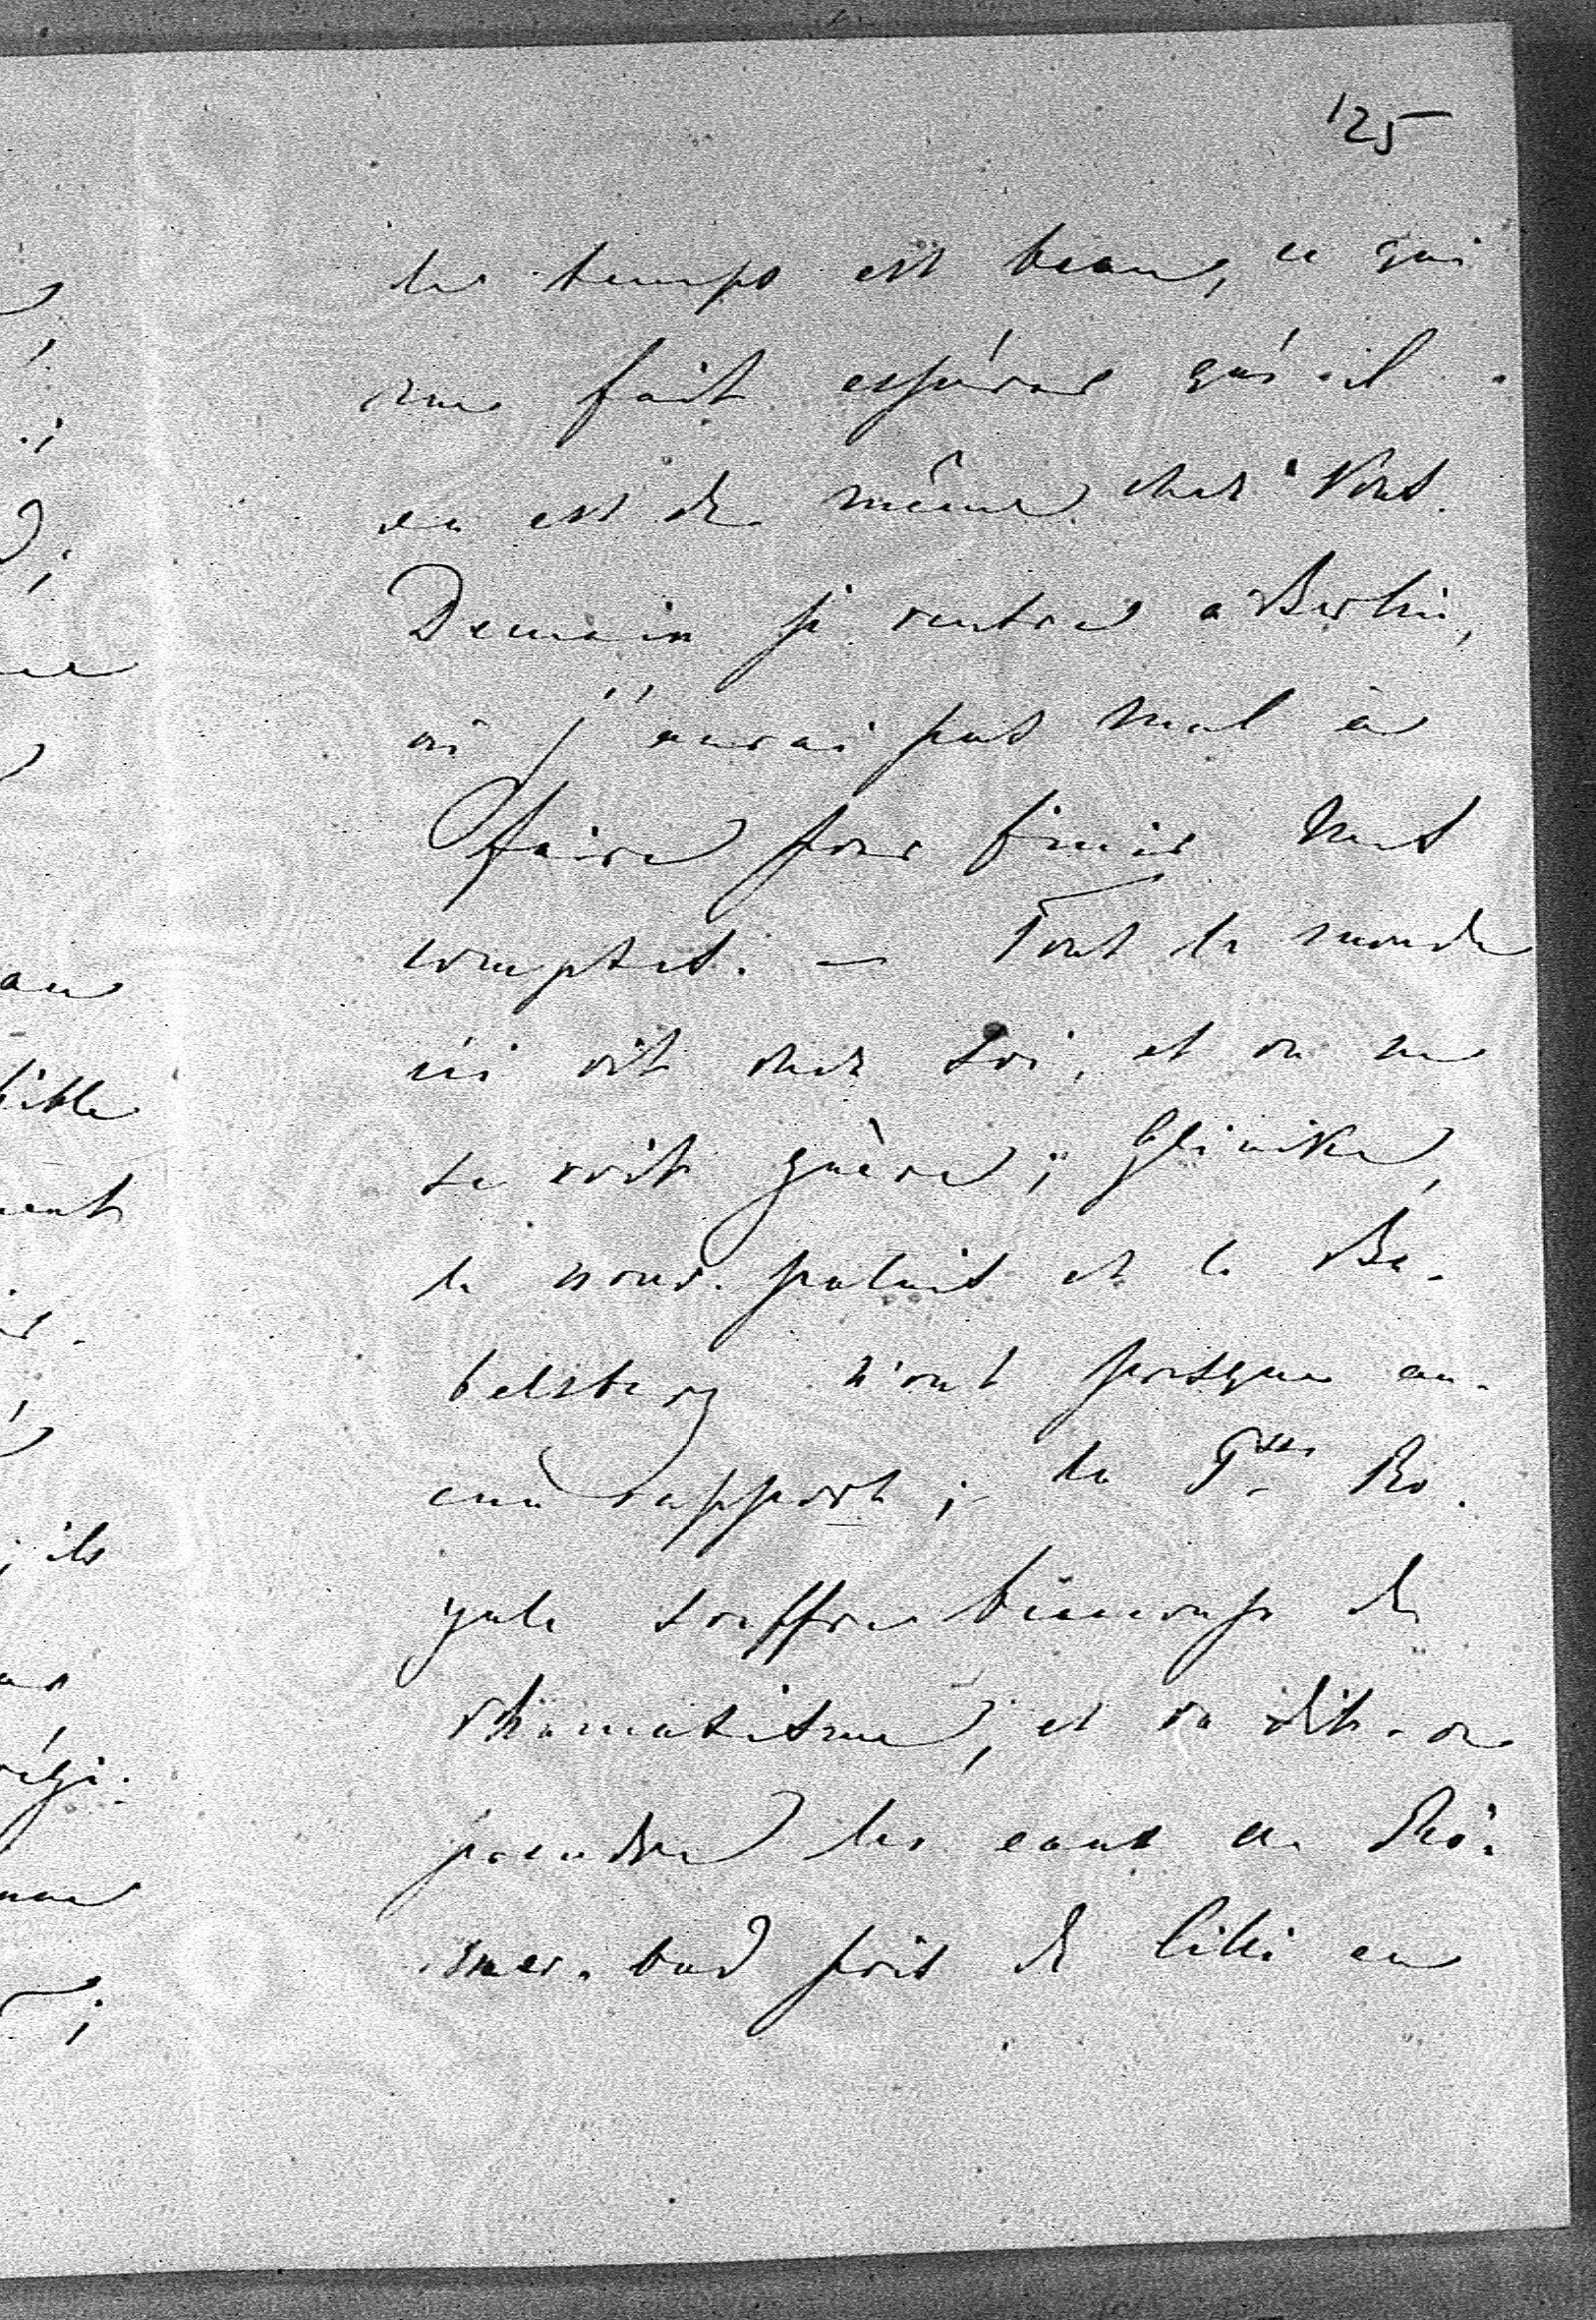 125
le temps est beau, ce qui
me fait espérer qu'il
en est de même chez Vous.
Demain je rentre à Berlin,
où j'aurai pas mal à
faire pour finir mes
comptes. — Tout le monde
ici vit chez soi, et on ne
se voit guère; Glinike,
le nouv. palais et le Ba-
belsberg n'ont presque au-
cun rapport; la Psse Ro-
yale souffre beaucoup de
rhumatisme, et va dit-on
prendre les eaux au Rö-
mer-bad près de Cilli en